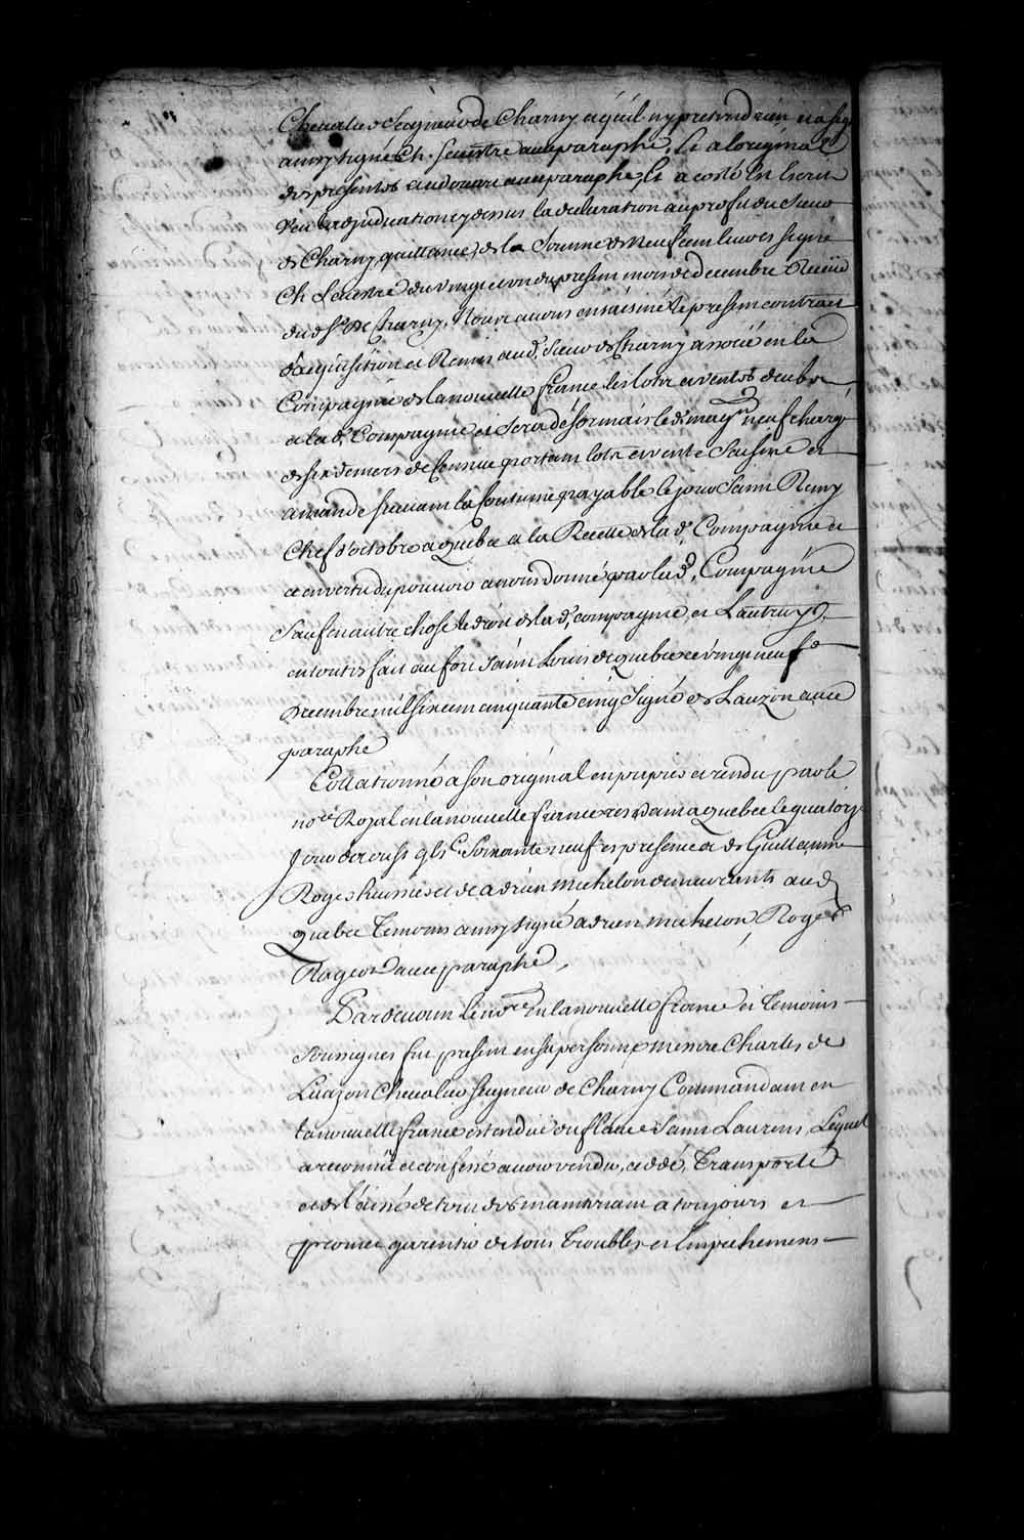 Chevalier Seigneur de Charny et quil ny pretend rien et a sig
ainsy signé Ch. Sevestre avec paraphe, Et a loriginal
des presentes audouart avec paraphe, Et a costé Est Escrit
Veu ladjudication cy dessus la declaration au profit du Sieur
de Charny, quittance de la Somme de Neuf cent livres signé
Ch Sevestre du vingt et un du present mois de decembre Receüe
dud Sr De Charny, Nous avons ensaisiné le present contract
d'aquisition et Remis aud. Sieur de Charny associé en la
Compagnie de la nouvelle france les lotz et ventes deubz
a lad. Compagnie et Sera désormais led. magn neuf chargé
de six deniers de Cens portant lotz et vente Saisine et
amande suivant la Coutume payable le jour Saint Remy
Chef d'octobre a Quebec a la Recette de la d. Compagnie et
et en vertu du pouvoir a nous donné par lad. Compagnie
Sauf en autre chose le droit de lad. compagnie et Lautruy
en toutes fait au fort Saint Louis de Quebec ce vingt neuf de
Decembre mil six cent cinquante cinq Signé de Lauzon avec
paraphe
Collationné a son original en papier et rendu par le
nore Royal en la nouvelle france resident a Quebec le quatorze
Jour daoust gbic. Soixante neuf es presence de Guillaume
Roger huissier et de adrien michelon demeurants aud
Quebec Temoins ainsy signé adrien michelon, Roger
Rageot avec paraphe,
Pardevant le nore En la nouvelle france et Temoins
soussignes fut present en sa personne messire Charles de
Lauzon Chevalier Seigneur de Charny Commandant en
la nouvelle france estendue du fleuve Saint Laurens, Lequel
a reconnu et confessé avoir vendu, ceddé, Transporté
et delaissé de tout des maintenant a toujours et
promet garentir de tous Troubles et Empechemens